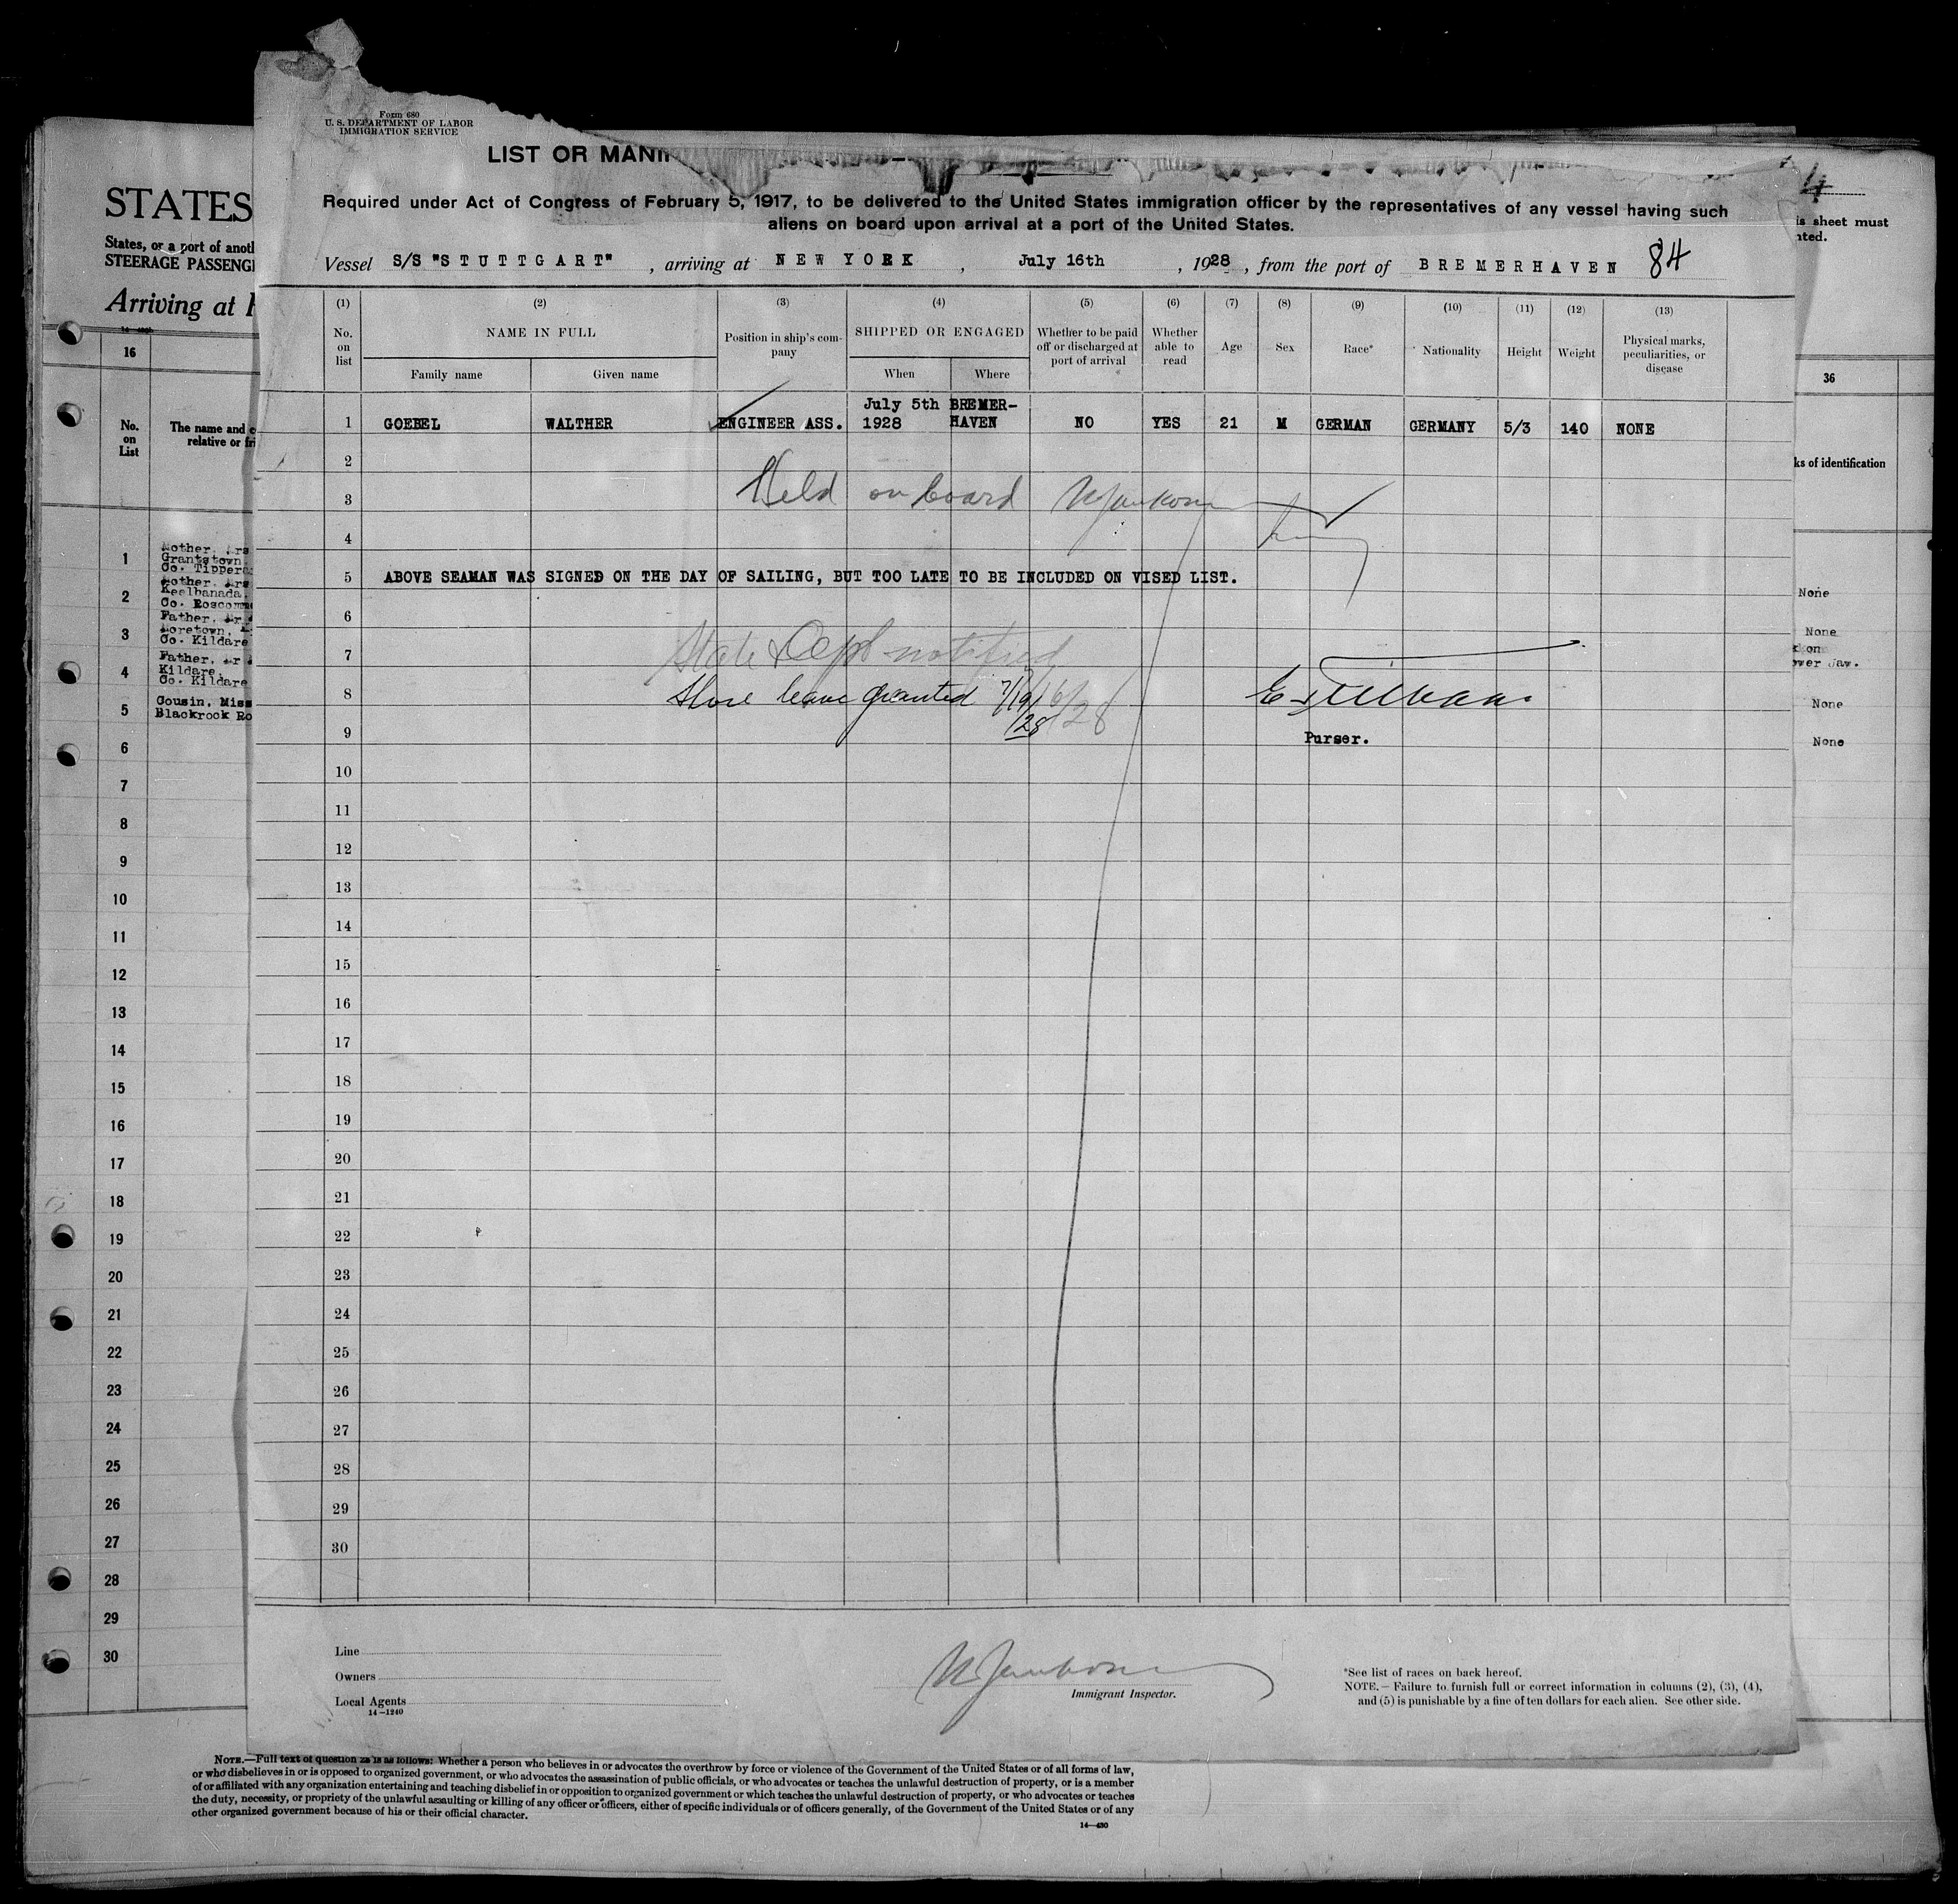 Form 680
U. S. DEPARTMENT OF LABOR
IMMIGRATION SERVICE
LIST OR MANI
Required under Act of Congress of February 5, 1917, to be delivered to the United States immigration officer by the representatives of any vessel having such
aliens on board upon arrival at a port of the United States.
Vessel S/S "STUTTGART", arriving at NEW YORK, July 16th, 1928, from the port of BREMERHAVEN 84
(1) (2) (3) (4) (5) (6) (7) (8) (9) (10) (11) (12) (13)
No. on list
NAME IN FULL
Family name
Given name
Position in ship's company
SHIPPED OR ENGAGED
When
Where
Whether to be paid off or discharged at port of arrival
Whether able to read
Age
Sex
Race*
Nationality
Height
Weight
Physical marks, peculiarities, or disease
1 GOEBEL WALTHER ENGINEER ASS. July 5th 1928 BREMER-HAVEN NO YES 21 M GERMAN GERMANY 5/3 140 NONE
2
3 Held on board
4
5 ABOVE SEAMAN WAS SIGNED ON THE DAY OF SAILING, BUT TOO LATE TO BE INCLUDED ON VISED LIST.
6
7 State Dept notified
8 Shore leave granted 7/19/28
9 Purser.
10
11
12
13
14
15
16
17
18
19
20
21
22
23
24
25
26
27
28
29
30
Line
Owners
Local Agents
14—1240
Immigrant Inspector.
*See list of races on back hereof.
NOTE.—Failure to furnish full or correct information in columns (2), (3), (4),
and (5) is punishable by a fine of ten dollars for each alien. See other side.
STATES
States, or a port of anoth
STEERAGE PASSENG
Arriving at
16
No. on List
The name and
relative or fri
1 Mother, Mrs
Grantstown,
Co. Tippera
2 Mother, Mrs
Keelbanada,
Co. Roscomm
3 Father, Mr
Moretown,
Co. Kildare
4 Father, Mr
Kildare,
Co. Kildare
5 Cousin, Miss
Blackrock Ro
6
7
8
9
10
11
12
13
14
15
16
17
18
19
20
21
22
23
24
25
26
27
28
29
30
is sheet must
nted.
36
ks of identification
None
None
on
ower Jaw.
None
None
NOTE.—Full text of question 24 is as follows: Whether a person who believes in or advocates the overthrow by force or violence of the Government of the United States or of all forms of law,
or who disbelieves in or is opposed to organized government, or who advocates the assassination of public officials, or who advocates or teaches the unlawful destruction of property, or is a member
of or affiliated with any organization entertaining and teaching disbelief in or opposition to organized government or which teaches the unlawful destruction of property, or who advocates or teaches
the duty, necessity, or propriety of the unlawful assaulting or killing of any officer or officers, either of specific individuals or of officers generally, of the Government of the United States or of any
other organized government because of his or their official character.
14—430